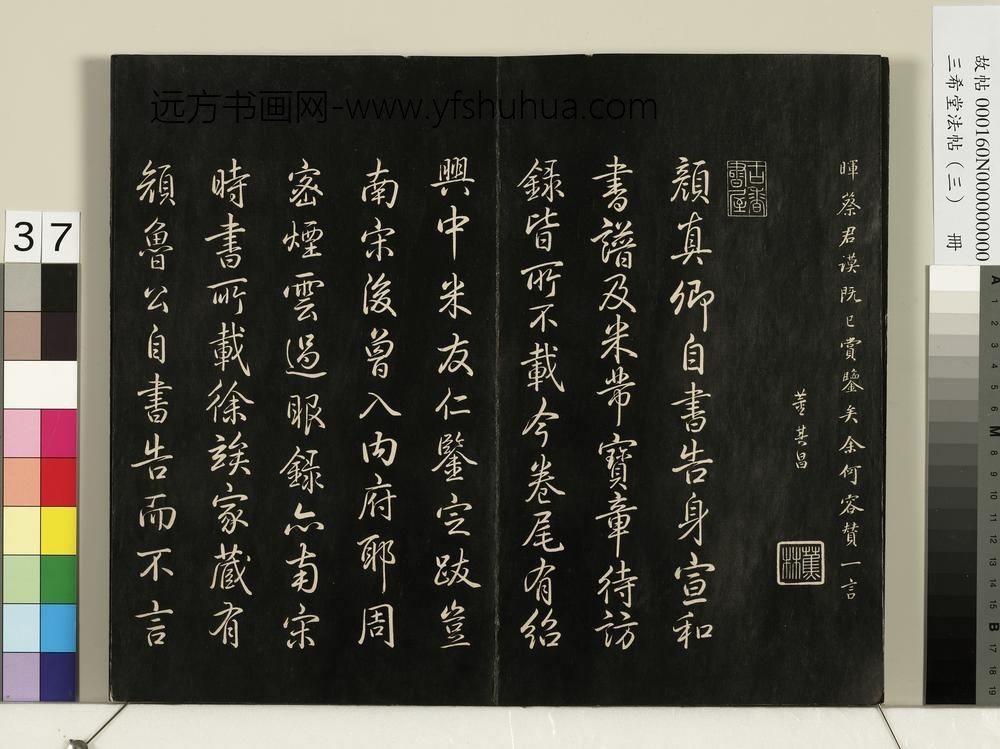 远方书画网-www.yfshuhua.com
故帖 000160N000000000
三希堂法帖（三） 冊
暉蔡君謨既已賞鑒矣余何容贊一言
董其昌
蕉林
古香書屋
顏真卿自書告身宣和
書譜及米芾寶章待訪
錄皆所不載今卷尾有紹
興中米友仁鑒定跋豈
南宋後曾入內府耶周
密煙雲過眼錄亦南宋
時書所載徐諓家藏有
顏魯公自書告而不言
37
A 1 2 3 4 5 6 M 8 9 10 11 12 13 14 15 B 17 18 19